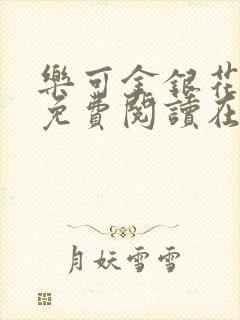 樂可金銀花
免費閱讀在
月妖雪雪